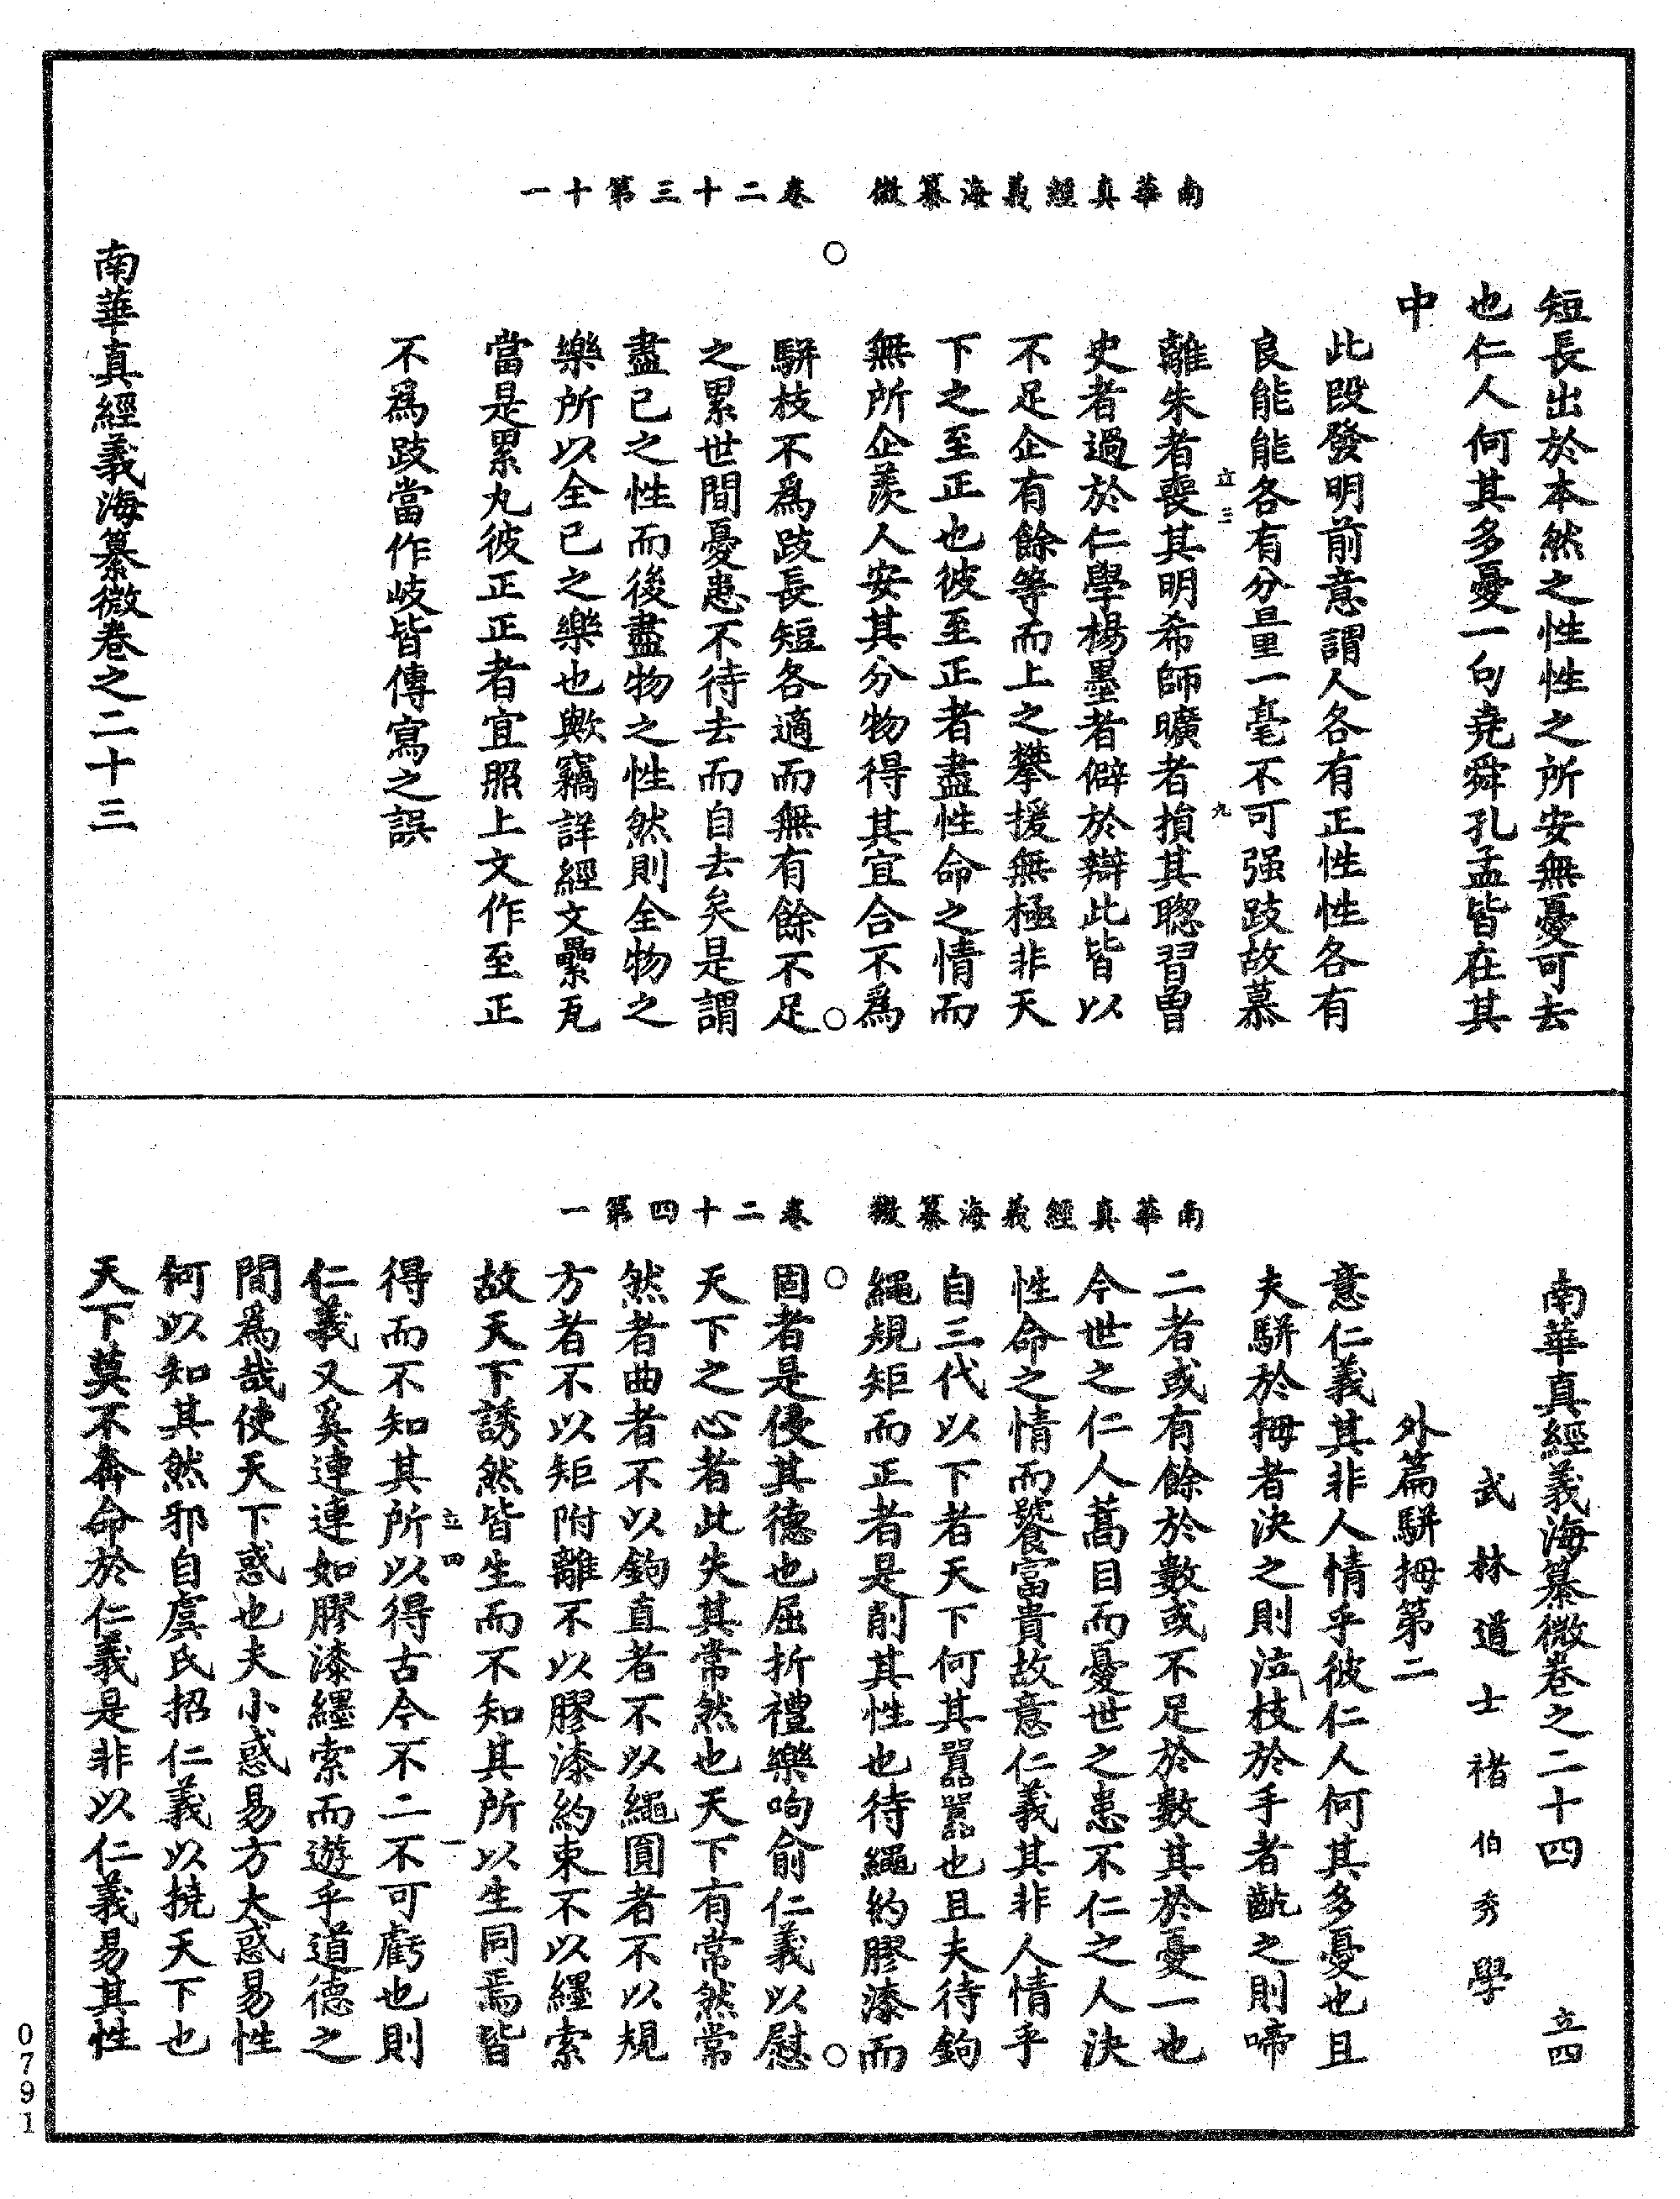 南華真經義海纂微　卷二十三第十一
短長出於本然之性性之所安無憂可去
也仁人何其多憂一句堯舜孔孟皆在其
中
此段發明前意謂人各有正性性各有
良能能各有分量一毫不可强跂故慕
立三
九
離朱者喪其明希師曠者損其聰習曾
史者過於仁學楊墨者僻於辯此皆以
不足企有餘等而上之攀援無極非天
下之至正也彼至正者盡性命之情而
無所企羨人安其分物得其宜合不爲
駢枝不爲跂長短各適而無有餘不足
之累世間憂患不待去而自去矣是謂
盡已之性而後盡物之性然則全物之
樂所以全已之樂也歟竊詳經文纍瓦
當是累丸彼正正者宜照上文作至正
不爲跂當作岐皆傳寫之誤
南華真經義海纂微卷之二十三
南華真經義海纂微　卷二十四第一
南華真經義海纂微卷之二十四
立四
武林道士褚伯秀學
外篇駢拇第二
意仁義其非人情乎彼仁人何其多憂也且
夫駢於拇者決之則泣枝於手者齕之則啼
二者或有餘於數或不足於數其於憂一也
今世之仁人蒿目而憂世之患不仁之人決
性命之情而饕富貴故意仁義其非人情乎
自三代以下者天下何其囂囂也且夫待鉤
繩規矩而正者是削其性也待繩約膠漆而
固者是侵其德也屈折禮樂呴俞仁義以慰
天下之心者此失其常然也天下有常然常
然者曲者不以鉤直者不以繩圓者不以規
方者不以矩附離不以膠漆約束不以纆索
故天下誘然皆生而不知其所以生同焉皆
立四
一
得而不知其所以得古今不二不可虧也則
仁義又奚連連如膠漆纆索而遊乎道德之
間爲哉使天下惑也夫小惑易方大惑易性
何以知其然邪自虞氏招仁義以撓天下也
天下莫不奔命於仁義是非以仁義易其性
0791